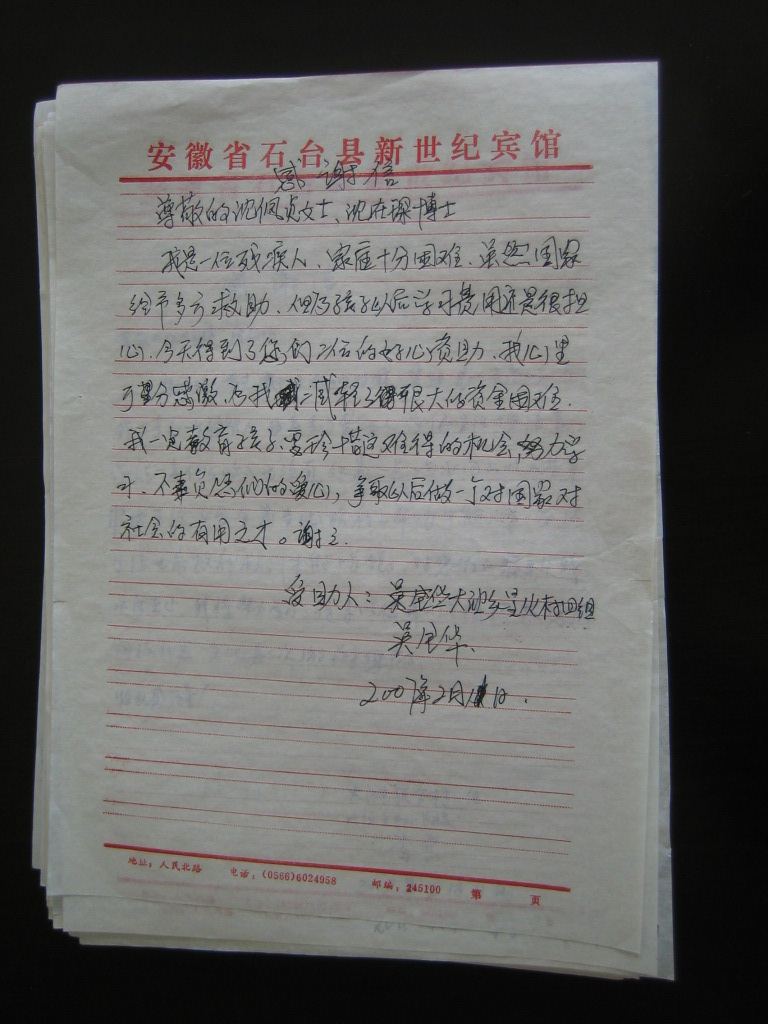 安徽省石台县新世纪宾馆
感谢信
尊敬的沈佩贞女士、沈在琛博士
我是一位残疾人、家庭十分困难、虽然国家
给予多方救助、但为孩子以后学习费用还是很担
心、今天得到了您们二位的好心资助、我心里
十分感激、为我减轻了很大的资金困难.
我一定教育孩子要珍惜这难得的机会,努力学
习、不辜负您们的爱心,争取以后做一个对国家对
社会的有用之才。谢之.
受助人:吴宝华大演乡 村四组
吴宝华.
2007年2月 日.
地址:人民北路 电话:(0566)6024958 邮编:245100 第 页